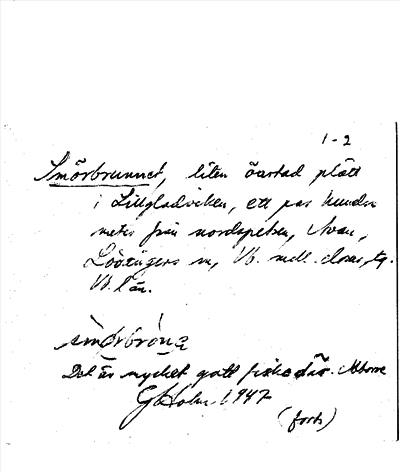 1-2
Smörbrunnet, liten öartad plätt
i Lillgladviken, ett par hundra
meter från nordspetsen, Avan,
Lövångers sn, Vb.
Vb. län.
Det är mycket gott fiske där. Abborre
G Holm 1947
(forts)